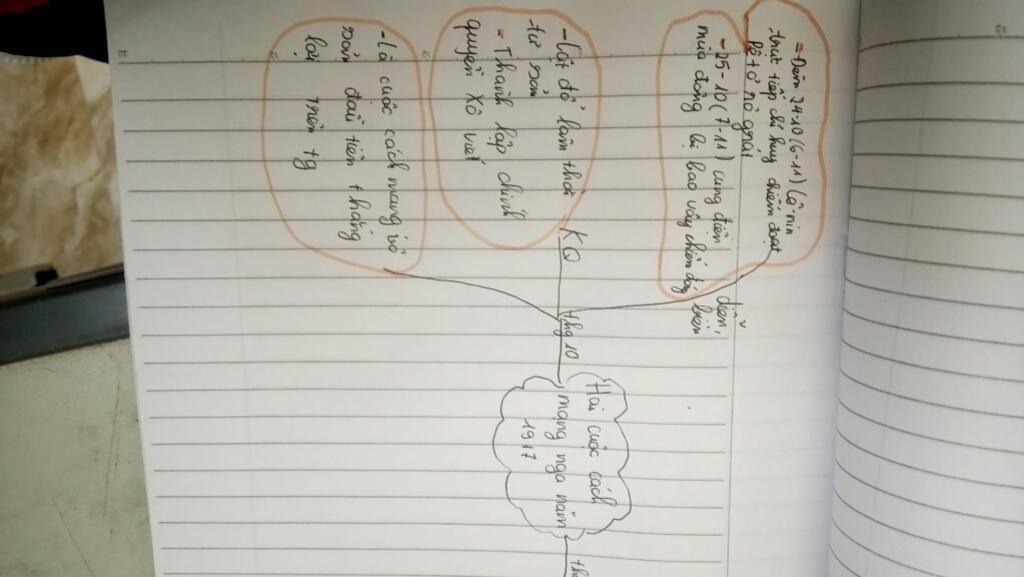 - Đêm 24-10 (6-11) Lê-nin
trực tiếp chỉ huy chiếm đoạt
Pê-tơ-rô-grát
- 25-10 (7-11) cung điện
mùa đông bị bao vây chiếm
- Lật đổ lâm thời
tư sản
- Thành lập chính
quyền Xô viết
- Là cuộc cách mạng vô
sản đầu tiên thắng
lợi trên tg
KQ
thg 10
Hai cuộc cách
mạng nga năm
1917